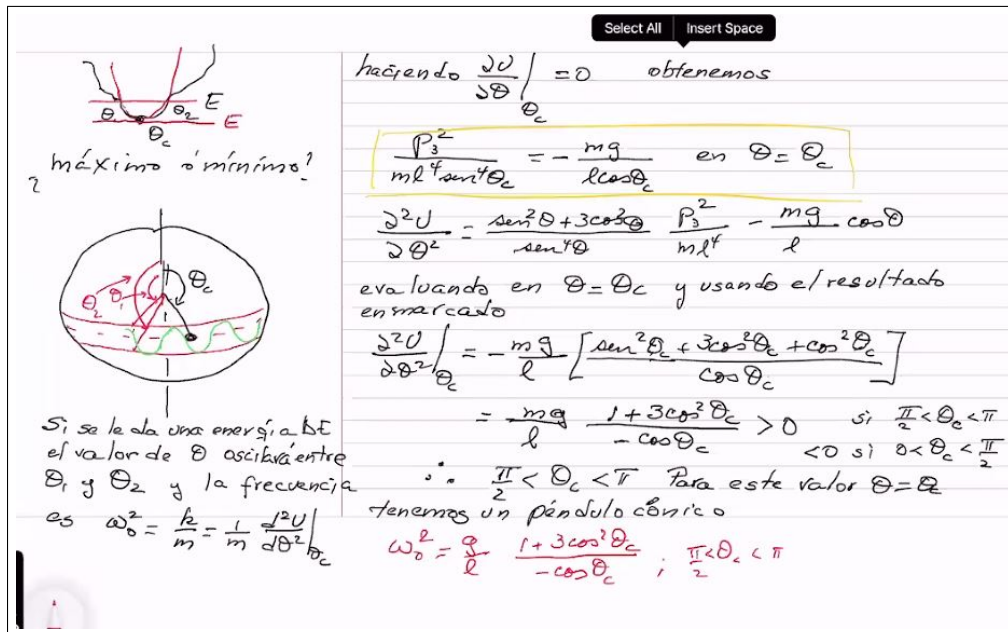 Select All Insert Space
E
θ₁ θ₂ E
θc
máximo ó mínimo?
?
θc
θ₂ θ₁
Si se le da una energía ΔE
el valor de θ oscilará entre
θ₁ y θ₂ y la frecuencia
es ω₀² = k/m = 1/m d²U/dθ²|θc
haciendo ∂U/∂θ|θc = 0 obtenemos
P₃²/(ml⁴sen⁴θc) = - mg/(lcosθc) en θ = θc
∂²U/∂θ² = (sen²θ + 3cos²θ)/sen⁴θ P₃²/ml⁴ - mg/l cosθ
evaluando en θ = θc y usando el resultado
enmarcado
∂²U/∂θ²|θc = - mg/l [(sen²θc + 3cos²θc + cos²θc)/cosθc]
= mg/l (1 + 3cos²θc)/(-cosθc) > 0 si π/2 < θc < π
< 0 si 0 < θc < π/2
∴ π/2 < θc < π Para este valor θ = θc
tenemos un péndulo cónico
ω₀² = g/l (1 + 3cos²θc)/(-cosθc) ; π/2 < θc < π